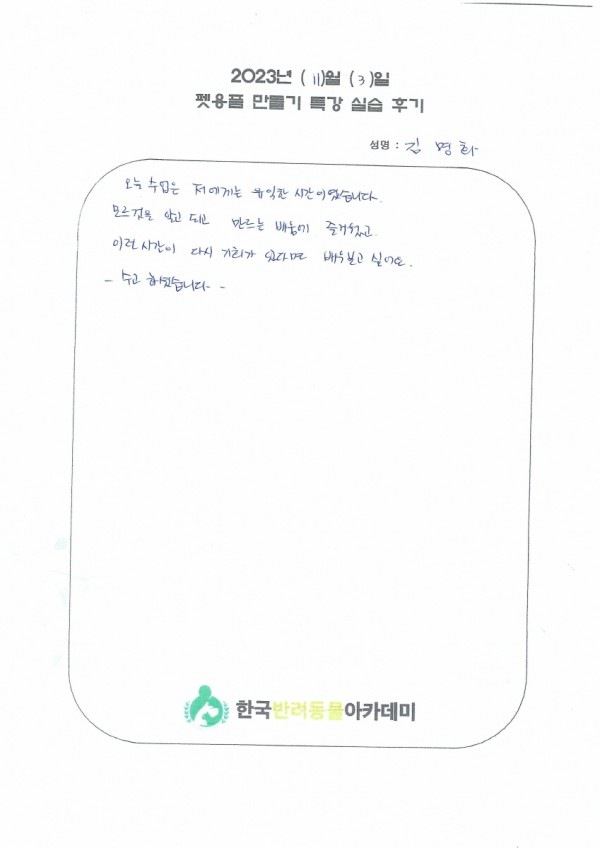 2023년 (11)월 (3)일
펫용품 만들기 특강 실습 후기
성명 : 김 명 화
오늘 수업은 저에게는 유익한 시간이었습니다.
모르것을 알고 되고 만드는 배움에 즐거웠고.
이런 시간이 다시 기회가 있다면 배우보고 싶어요.
- 수고 하셨습니다 -
한국반려동물아카데미